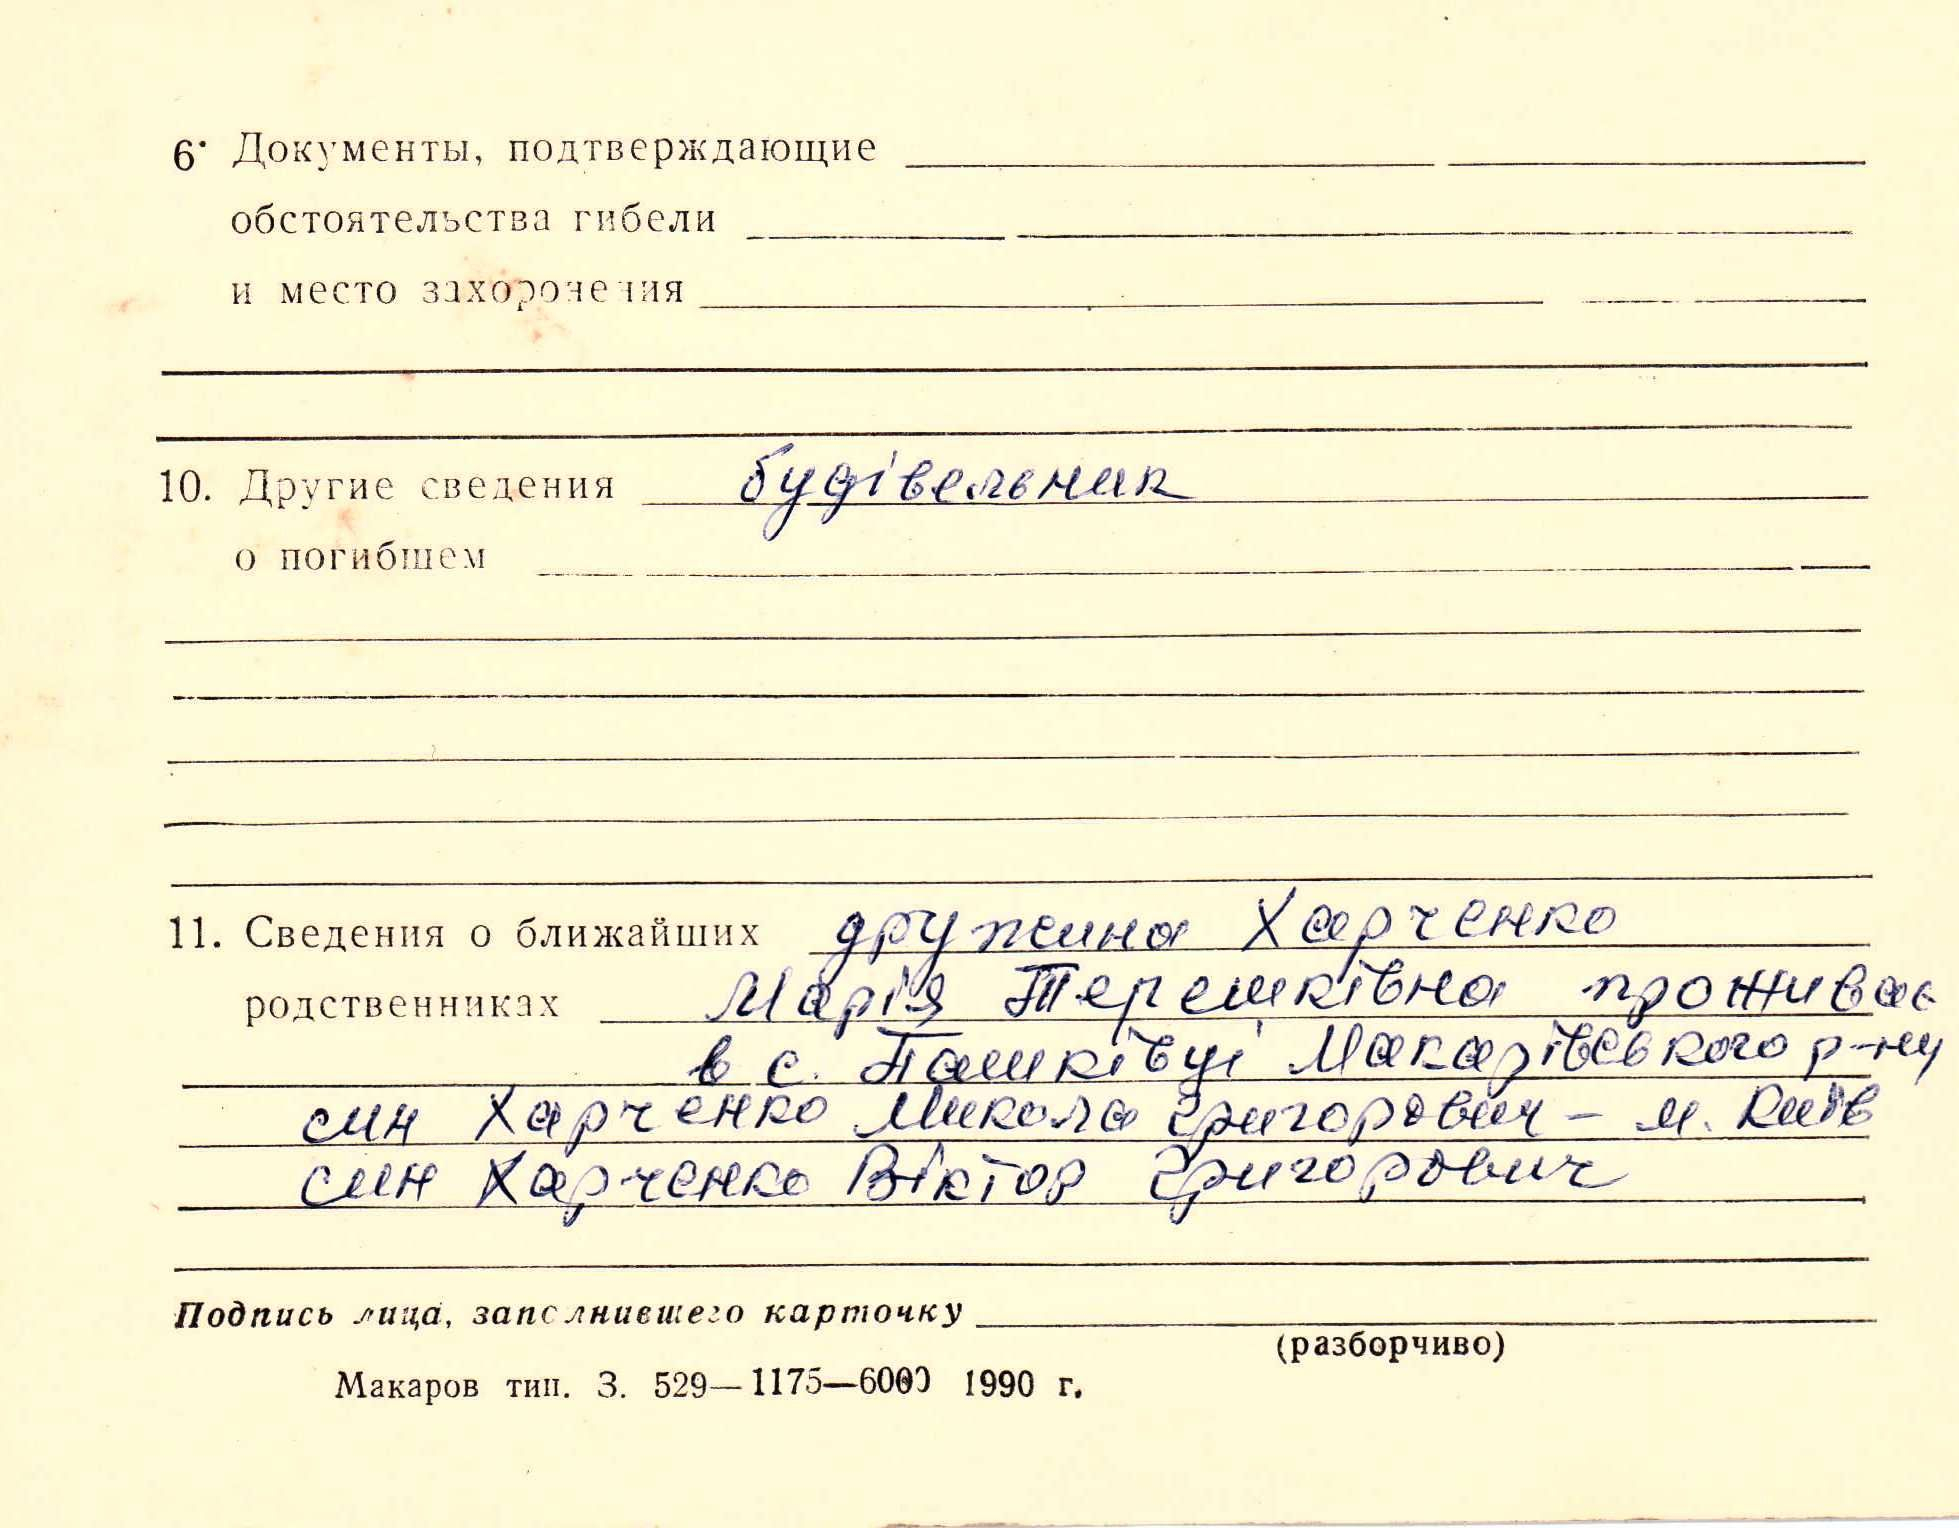 6. Документы, подтверждающие
обстоятельства гибели
и место захоронения
10. Другие сведения будівельник
о погибшем
11. Сведения о ближайших дружина Харченко
родственниках Марія Терешківна проживає
в с. Пашківці Макарівського р-ну
син Харченко Микола Григорович – м. Київ
син Харченко Віктор Григорович
Подпись лица, заполнившего карточку
(разборчиво)
Макаров тип. З. 529—1175—6000 1990 г.